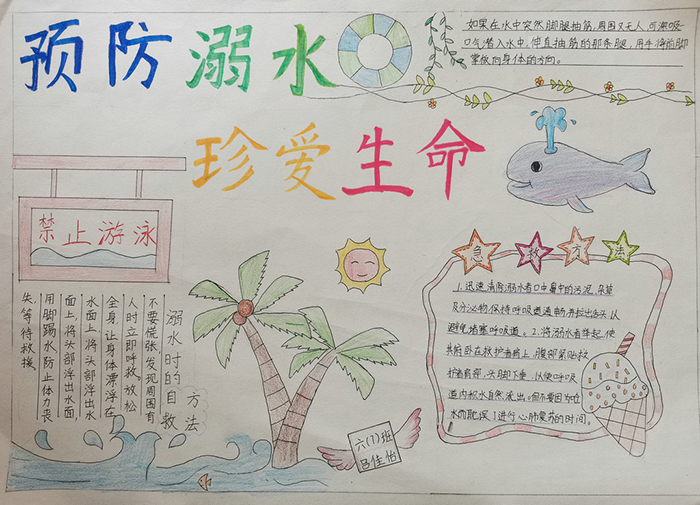 预防溺水
珍爱生命
如果在水中突然脚腿抽筋,周围又无人,可深吸
口气潜入水中,伸直抽筋的那条腿,用手将前脚
掌依向身体的方向。
禁止游泳
溺水时的自救方法
不要慌张发现周围有
人时立即呼救放松
全身,让身体漂浮在
水面上,将头部浮出水
面上,将头部浮出水面,
用脚踢水防止体力丧
失,等待救援。
急救方法
1.迅速清除溺水者口中鼻中的污泥、杂草
及分泌物,保持呼吸道通畅,并拉出舌头以
避免堵塞呼吸道。2.将溺水者举起,使
其俯卧在救护者肩上,腹部紧贴救
护者肩部,头脚下垂,以使呼吸
道内积水自然流出。但不要因为呛
水而耽误了进行心肺复苏的时间。
六(7)班
吕佳怡